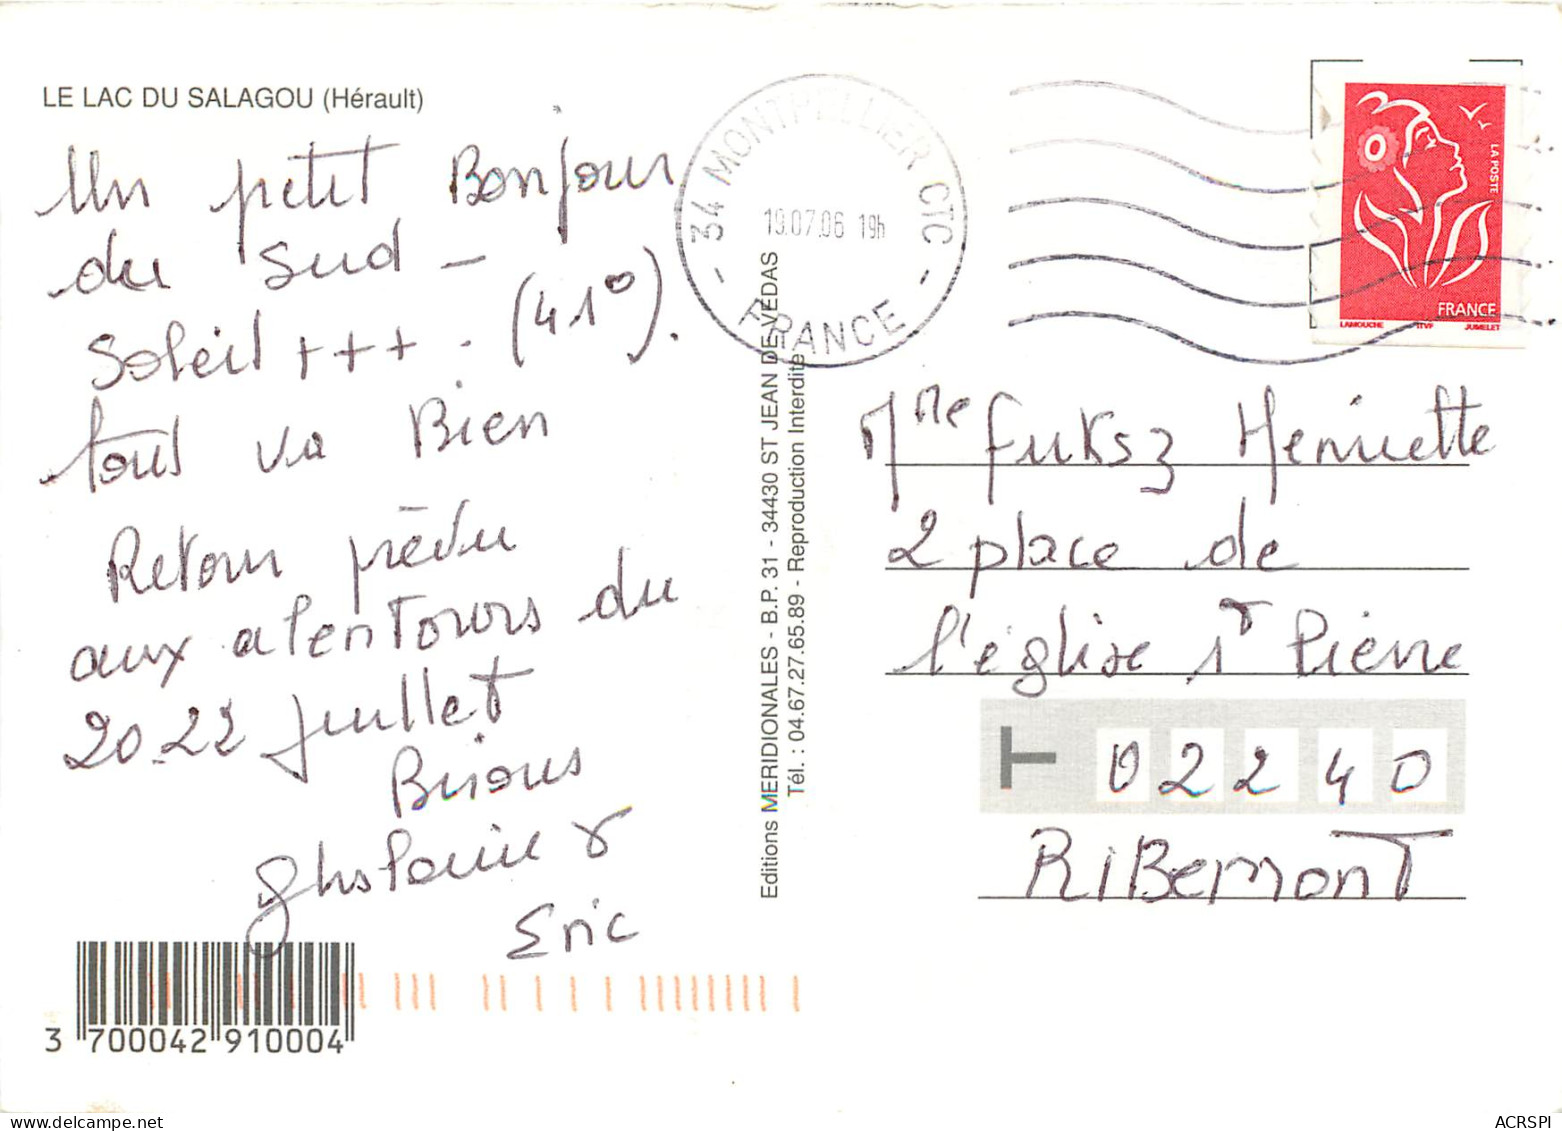 LE LAC DU SALAGOU (Hérault)
Un petit Bonjour
du Sud -
Soleil +++. (41°).
tout va Bien
Retour prévu
aux alentours du
20.22 Juillet
Bisous
Ghislaine &
Eric
3 700042 910004
Editions MERIDIONALES - B.P. 31 - 34430 ST JEAN DE VÉDAS
Tél. : 04.67.27.65.89 - Reproduction Interdite
34 MONTPELLIER CTC
19.07.06 19h
- FRANCE -
LA POSTE
FRANCE
LAMOUCHE ITVF JUMELET
Mme Fuksz Henriette
2 place de
l'église St Pierre
T 02240
RIBEMONT
ACRSPI